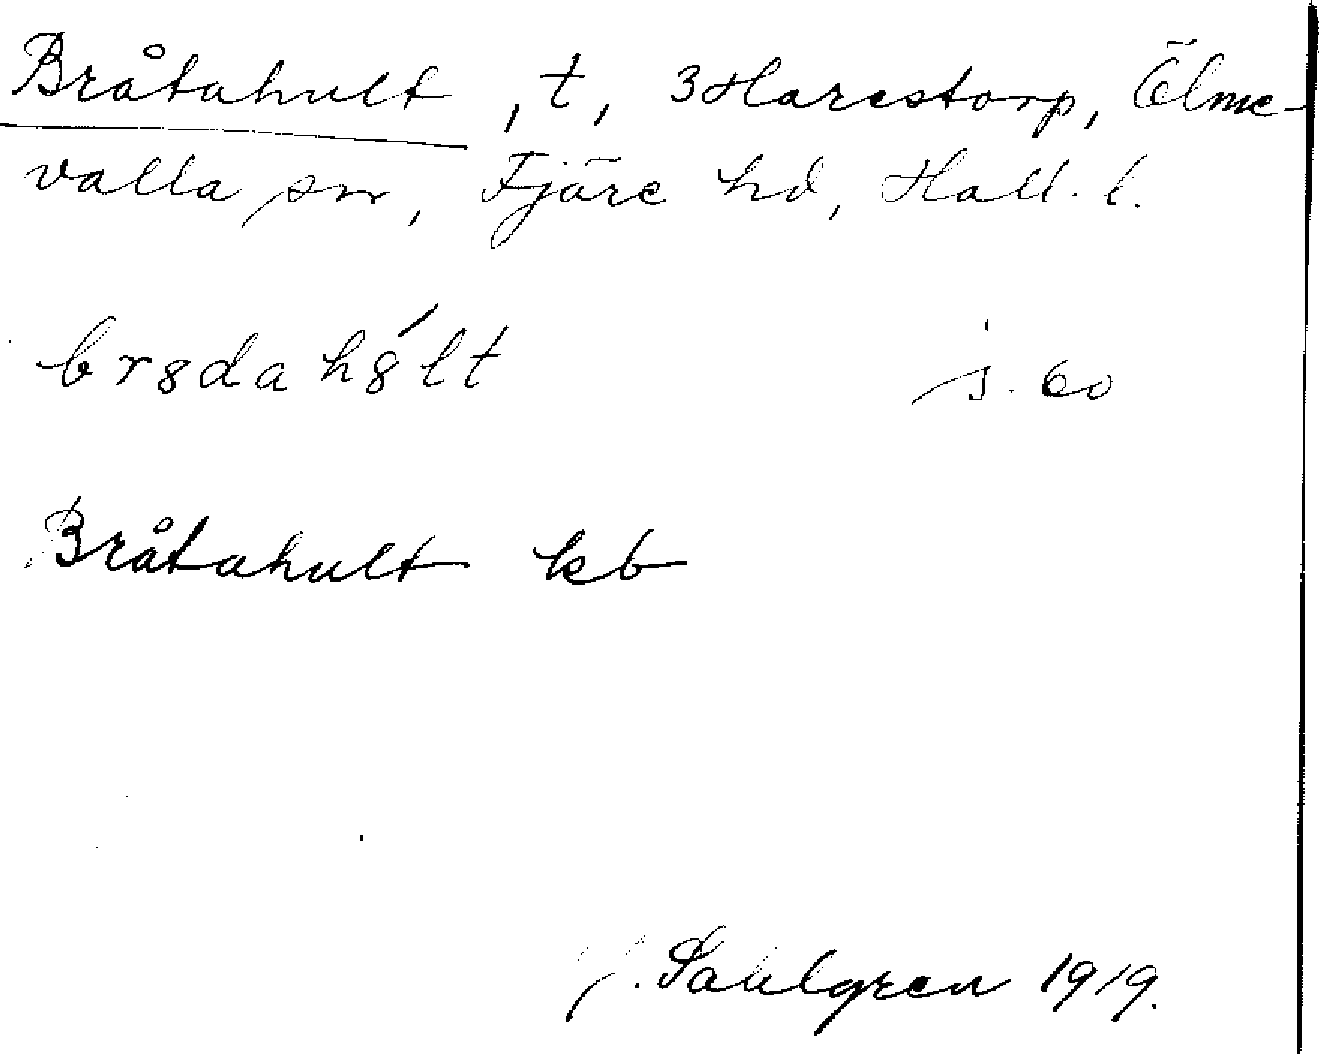 Bråtahult, t, 3 Harestorp, Ölme-
valla sn, Fjäre hd, Hall. l.
br8dah8́lt s. 60
Bråtahult kb
J. Sahlgren 1919.